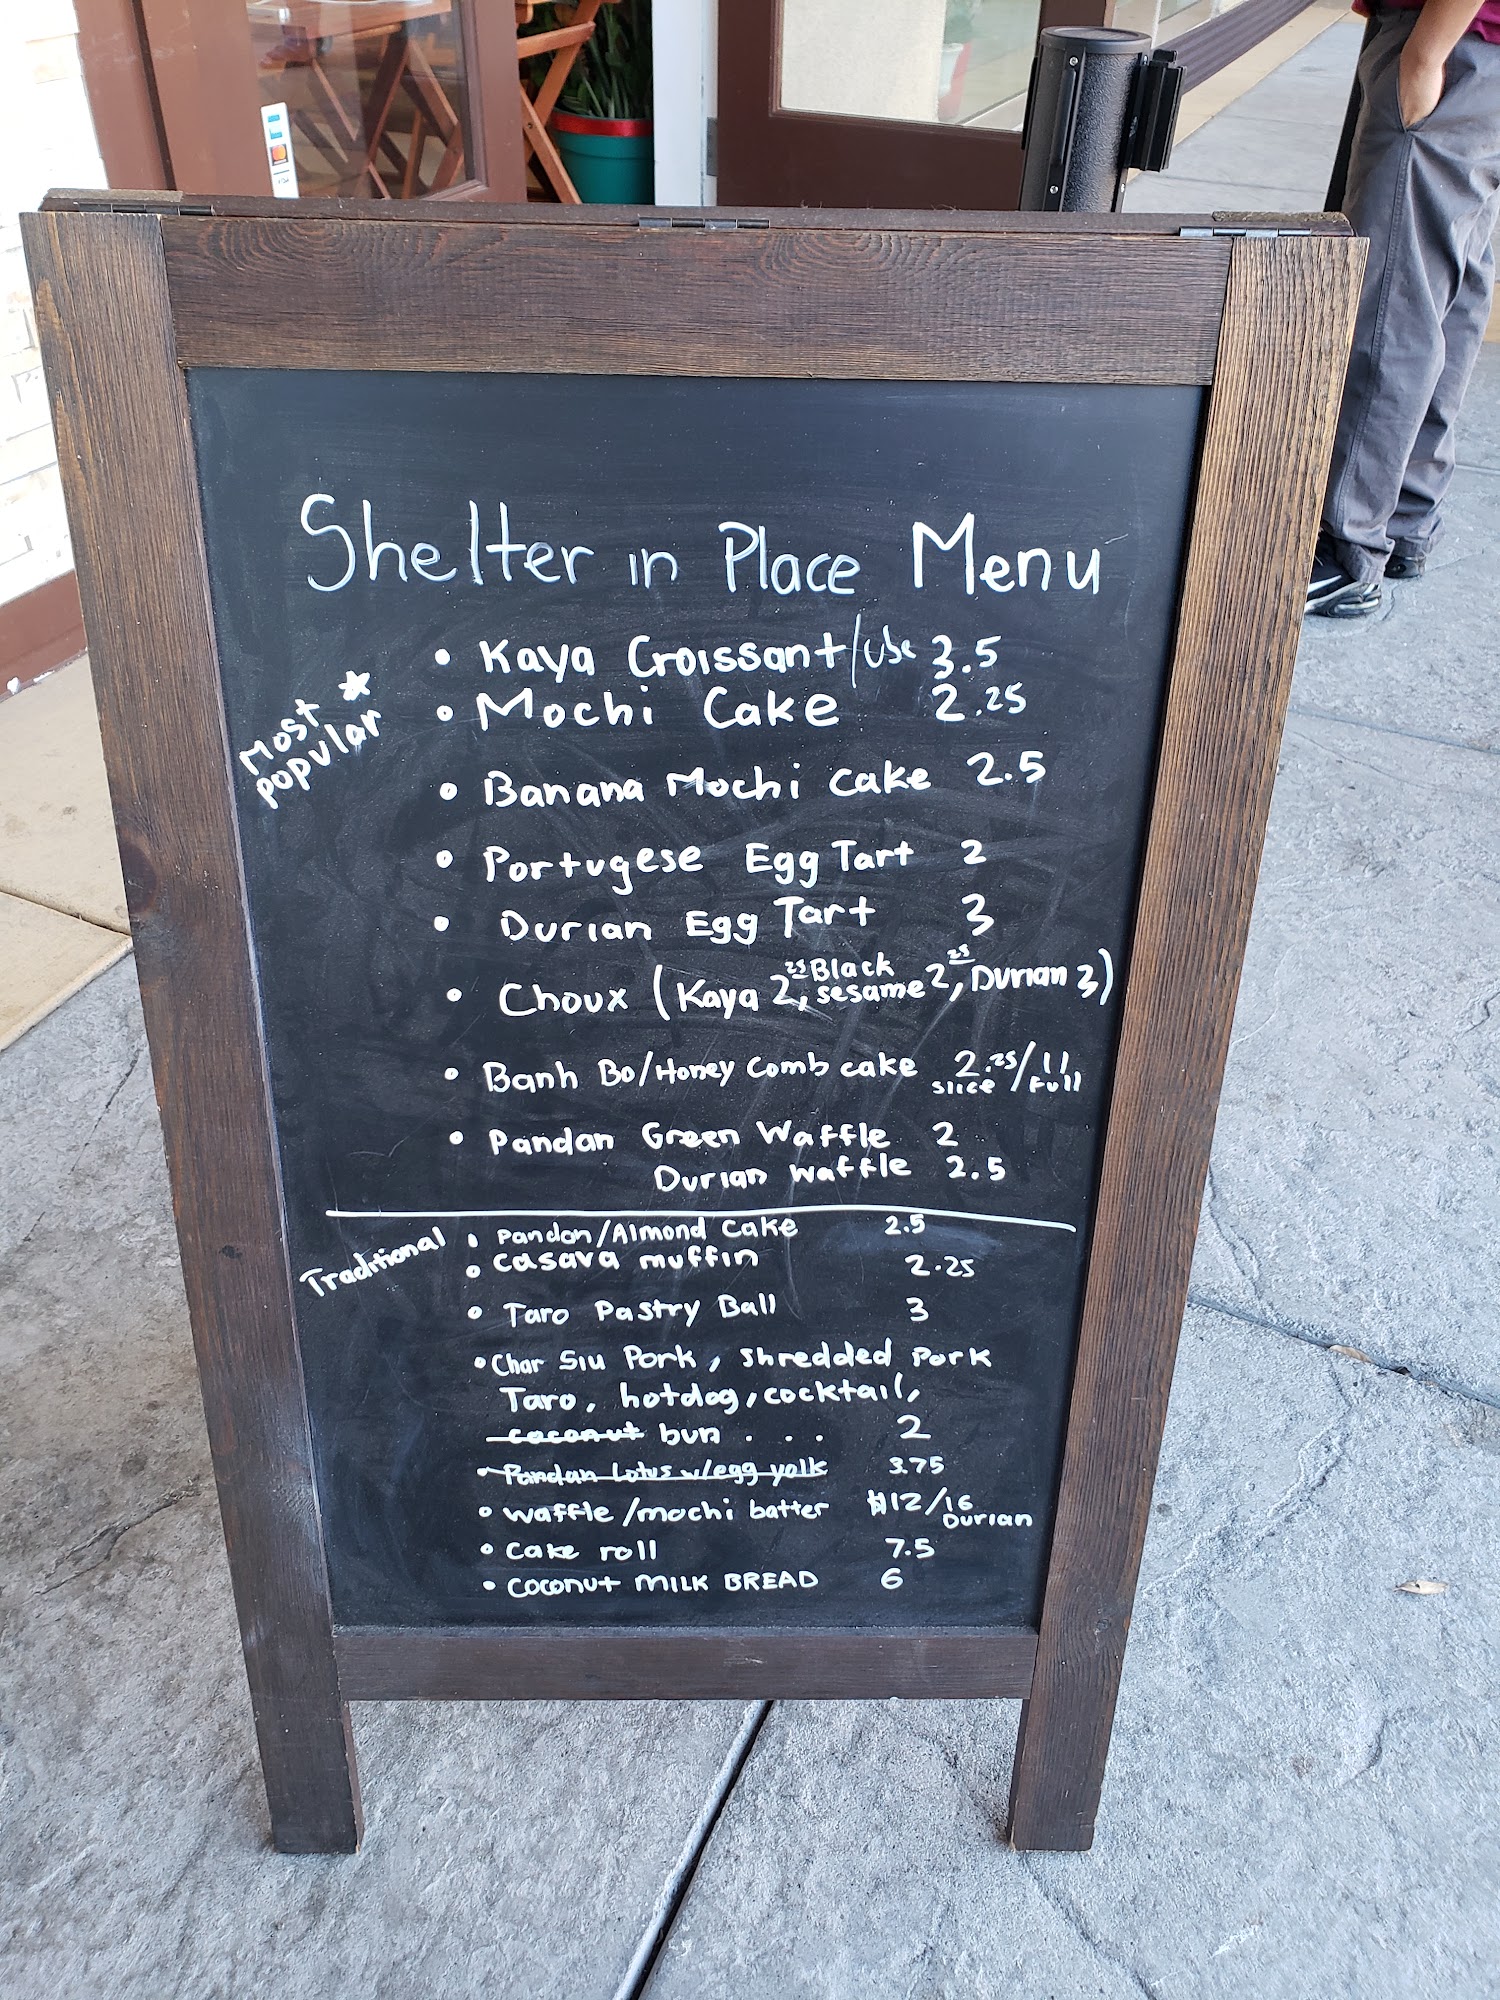 Shelter in Place Menu
• Kaya Croissant/ube 3.5
Most popular
• Mochi Cake 2.25
• Banana Mochi cake 2.5
• Portugese Egg Tart 2
• Durian Egg Tart 3
• Choux (Kaya 2.25, Black sesame 2.25, Durian 3)
• Banh Bo/Honey comb cake 2.25 slice / 11 full
• Pandan Green Waffle 2
Durian Waffle 2.5
Traditional
• Pandan/Almond Cake 2.5
• Casava muffin 2.25
• Taro Pastry Ball 3
• Char Siu Pork, Shredded Pork
Taro, hotdog, cocktail,
coconut bun . . . 2
• Pandan Lotus w/egg yolk 3.75
• Waffle/mochi batter $12/16 Durian
• Cake roll 7.5
• Coconut MILK BREAD 6